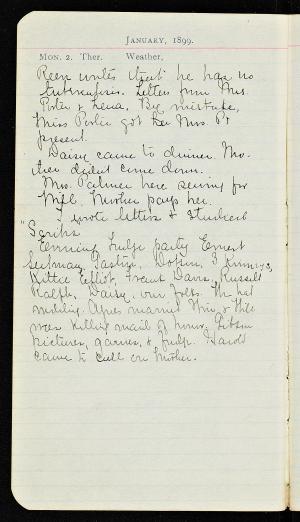 JANUARY, 1899.
MON. 2. Ther. Weather,
writes that he has no
Letter from Mrs.
Porter & Lena. By mistake,
Miss Porter got her Mrs. P's
present.
Daisy came to dinner. Mo-
ther didn't come down.
Mrs. Palmer here sewing for
Will. Mother pays her.
I wrote letters & studied
Evening fudge party Ernest
3
Kittie Elliot, Frank Davis, Russell
Ralph, Daisy, our folks. We had
wedding. Agnes married &
were maid of honor. Gibson
pictures, games, & fudge. Harold
came to call on Mother.